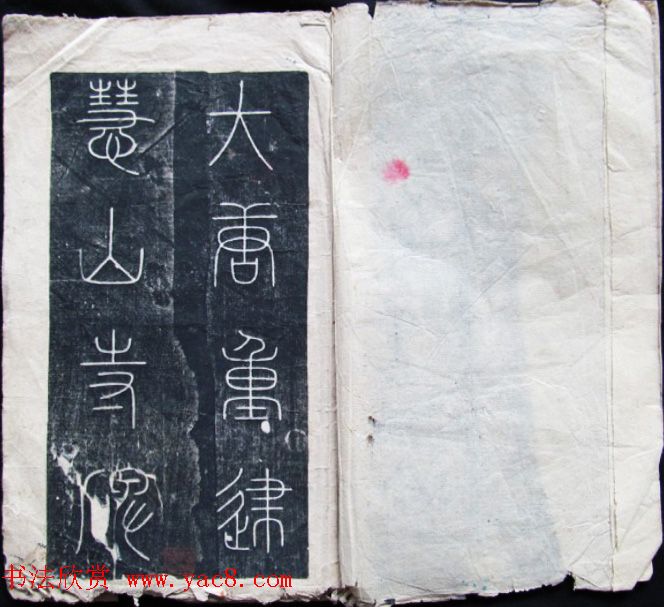 大唐重建
慧山寺
书法欣赏 www.yac8.com